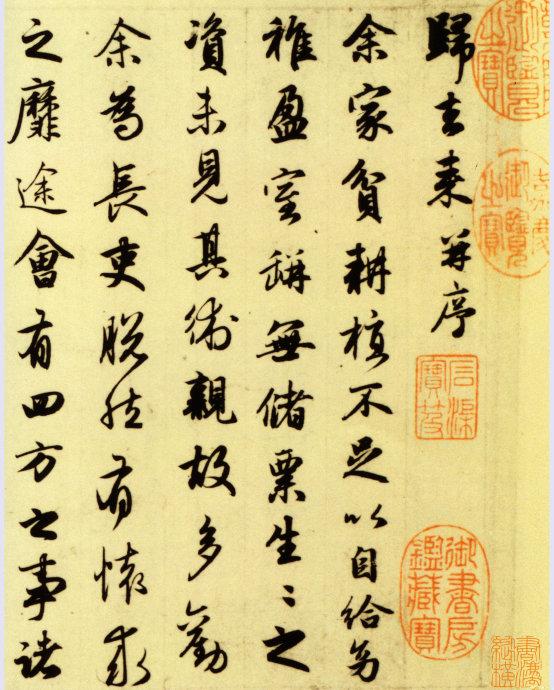 御覽之寶
御覽之寶
石渠寶笈
御書房鑑藏寶
歸去來并序
余家貧耕植不足以自給幼
稚盈室缾無儲粟生〻之
資未見其術親故多勸
余為長吏脫然有懷求
之靡途會有四方之事諸